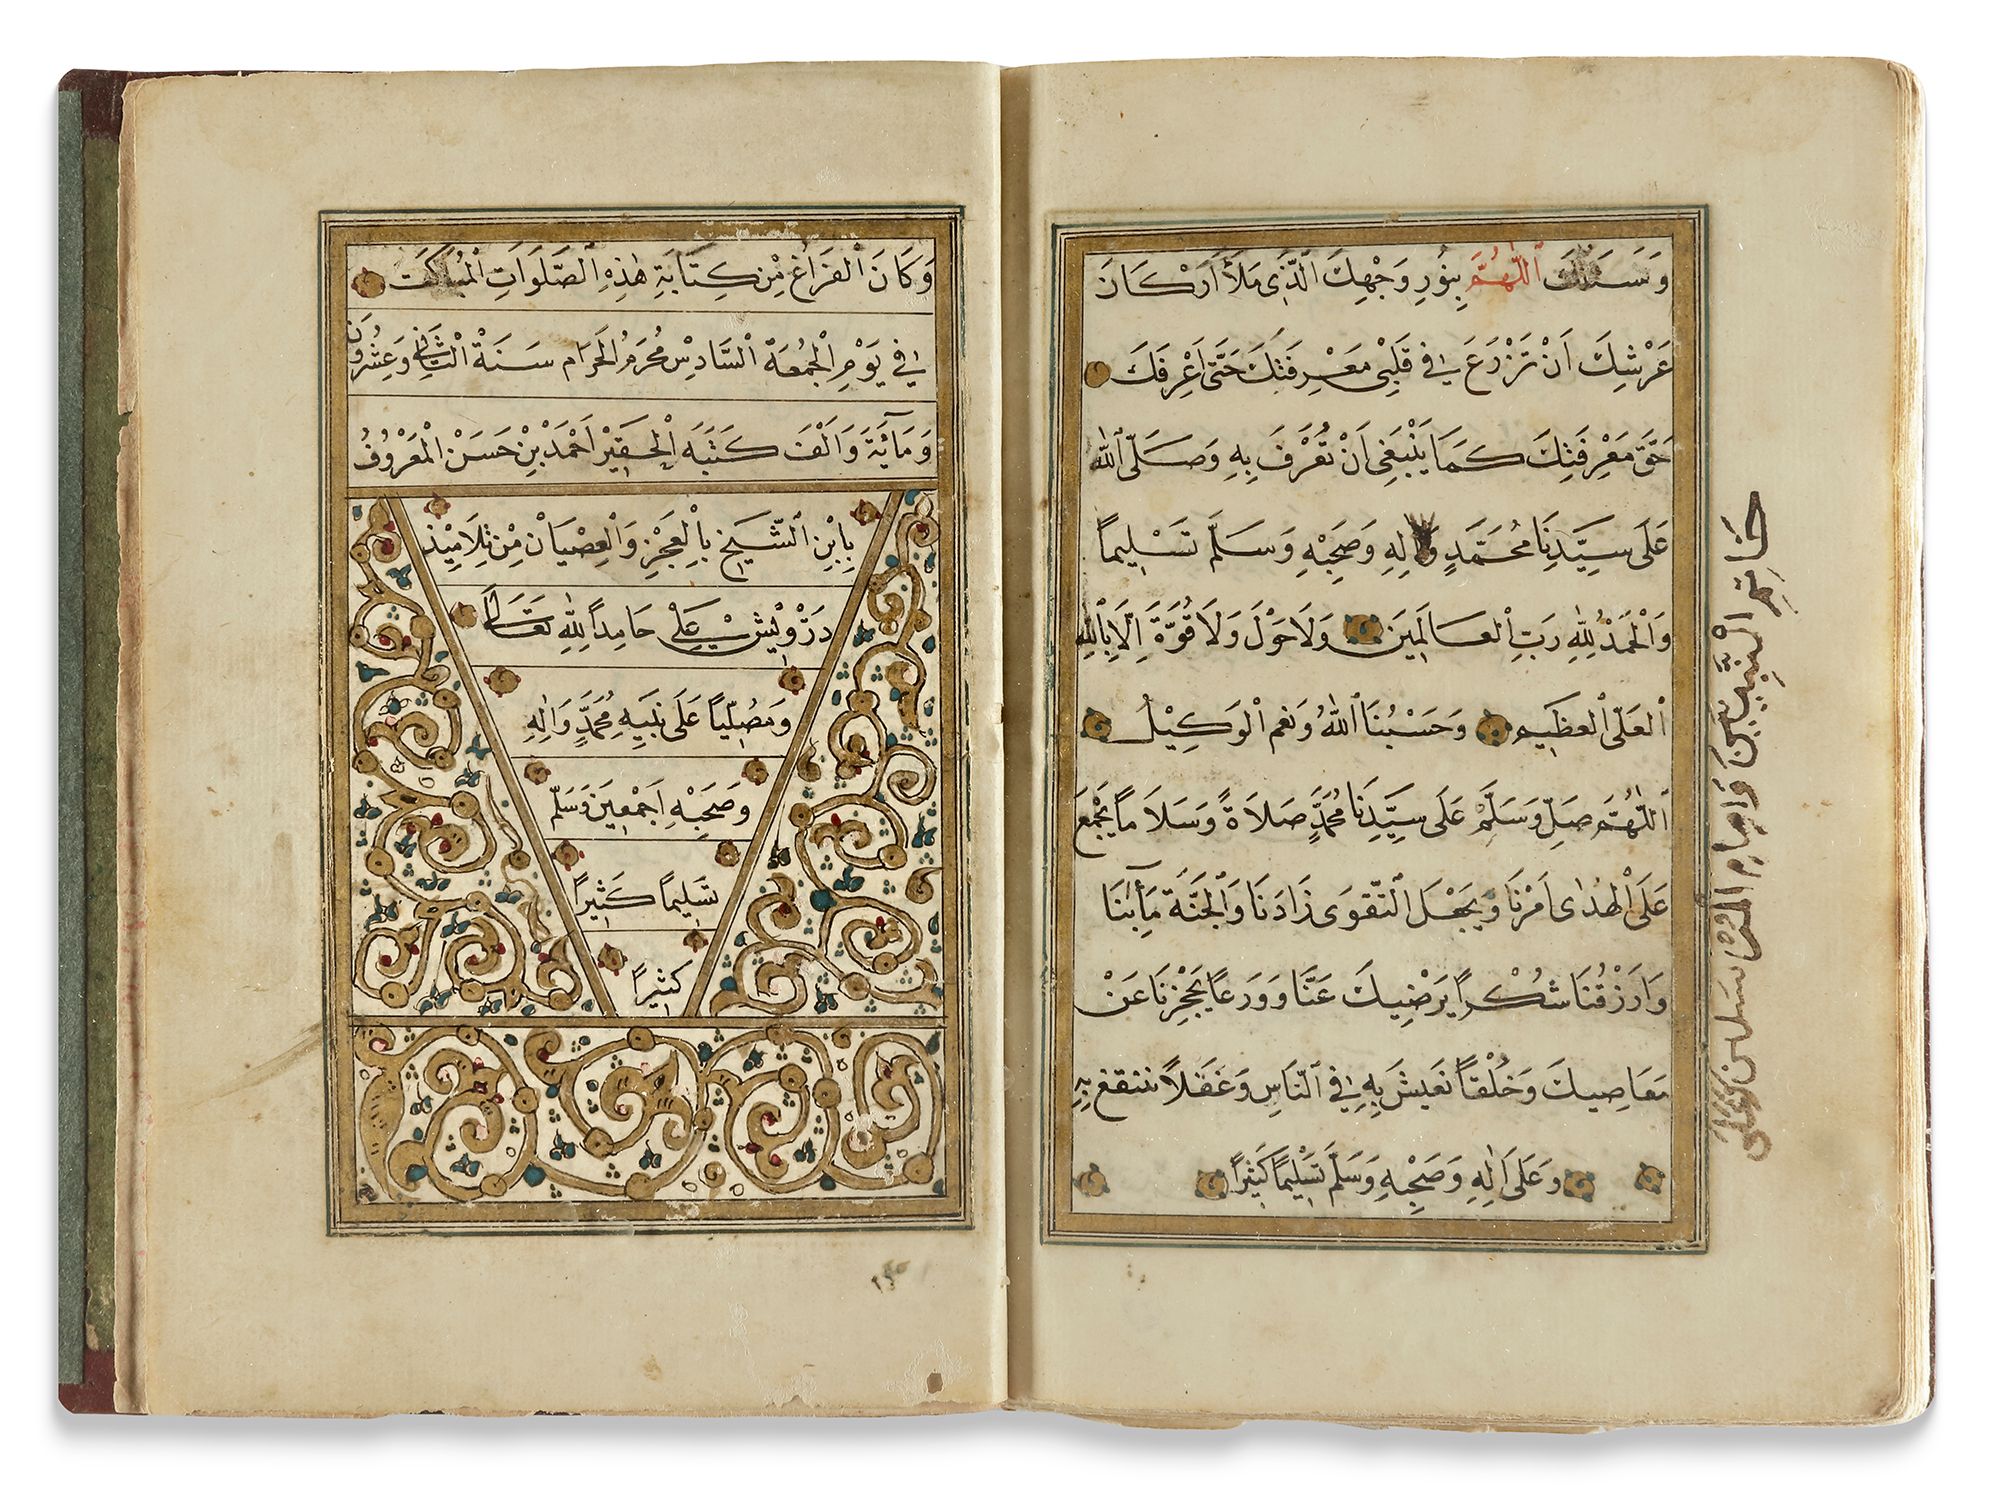 وَنَسْئَلُكَ اَللّٰهُمَّ بِنُورِ وَجْهِكَ الَّذِى مَلَأَ اَرْكَانَ
عَرْشِكَ اَنْ تَزْرَعَ فِى قَلْبِى مَعْرِفَتَكَ حَتَّى اَعْرِفَكَ
حَقَّ مَعْرِفَتِكَ كَمَا يَنْبَغِى اَنْ تُعْرَفَ بِهِ وَصَلَّى اللهُ
عَلَى سَيِّدِنَا مُحَمَّدٍ وَاٰلِهِ وَصَحْبِهِ وَسَلَّمَ تَسْلِيماً
وَالْحَمْدُ لِلّٰهِ رَبِّ الْعَالَمِينَ وَلَا حَوْلَ وَلَا قُوَّةَ اِلَّا بِاللهِ
الْعَلِىّ الْعَظِيمِ وَحَسْبُنَا اللهُ وَنِعْمَ الْوَكِيْلُ
اَللّٰهُمَّ صَلِّ وَسَلِّمْ عَلَى سَيِّدِنَا مُحَمَّدٍ صَلَاةً وَسَلَاماً يَجْمَعُ
عَلَى الْهُدٰى اَمْرَنَا وَيَجْعَلُ التَّقْوَى زَادَنَا وَالْجَنَّةَ مَآبَنَا
وَارْزُقْنَا شُكْراً يُرْضِيكَ عَنَّا وَوَرَعاً يَحْجِزُنَا عَنْ
مَعَاصِيكَ وَخُلُقاً نَعِيشُ بِهِ فِى النَّاسِ وَعَقْلاً نَنْتَفِعُ بِهِ
وَعَلَى اٰلِهِ وَصَحْبِهِ وَسَلِّمْ تَسْلِيمًا كَثِيرًا
خَاتِمِ النَّبِيِّينَ وَاِمَامِ الْمُرْسَلِينَ
وَكَانَ الْفَرَاغُ مِنْ كِتَابَةِ هٰذِهِ الصَّلَوَاتِ الْمُبَارَكَت
فِى يَوْمِ الْجُمُعَة السَّادِسْ مُحَرَّمُ الْحَرَامِ سَنَةْ الثَّانِى وَعِشْرُونَ
وَمَائَة وَاَلْفَ كَتَبَه الْحَقِيرْ اَحْمَدْ بِنْ حَسَنْ الْمَعْرُوفُ
بِابْنِ الشَّيْخِ بِالْعَجْزِ وَالْعِصْيَانْ مِنْ تَلَامِيْذ
دَرْوِيْشْ عَلِى حَامِداً لِلّٰهِ تَعَالَى
وَمُصَلِّياً عَلَى نَبِيِّهِ مُحَمَّدٍ وَاٰلِهِ
وَصَحْبِهِ اَجْمَعِينَ وَسَلَّم
تَسْلِيمًا كَثِيرًا
كَثِيرًا